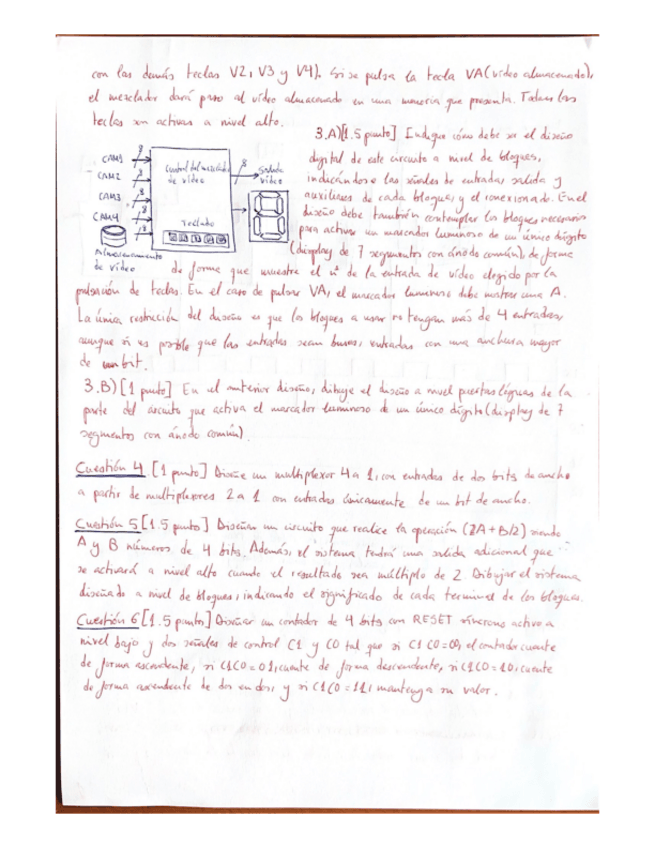 con las demás teclas V2, V3 y V4). Si se pulsa la tecla VA (vídeo almacenado),
el mezclador dará paso al vídeo almacenado en una memoria que presenta. Todas las
teclas son activas a nivel alto.
CAM1
CAM2
CAM3
CAM4
8
8
8
8
8
Almacenamiento
de vídeo
Control del mezclador
de vídeo
Teclado
8
Salida
vídeo
3.A) [1.5 punto] Indique cómo debe ser el diseño
digital de este circuito a nivel de bloques,
indicándose las señales de entradas, salida y
auxiliares de cada bloque, y el conexionado. En el
diseño debe también contemplar los bloques necesarios
para activar un marcador luminoso de un único dígito
(display de 7 segmentos con ánodo común), de forma
de forma que muestre el nº de la entrada de vídeo elegido por la
pulsación de teclas. En el caso de pulsar VA, el marcador luminoso debe mostrar una A.
La única restricción del diseño es que los bloques a usar no tengan más de 4 entradas,
aunque sí es posible que las entradas sean buses, entradas con una anchura mayor
de un bit.
3.B) [1 punto] En el anterior diseño, dibuje el diseño a nivel puertas lógicas de la
parte del circuito que activa el marcador luminoso de un único dígito (display de 7
segmentos con ánodo común).
Cuestión 4 [1 punto] Diseñe un multiplexor 4 a 1, con entradas de dos bits de ancho
a partir de multiplexores 2 a 1 con entradas únicamente de un bit de ancho.
Cuestión 5 [1.5 punto] Diseñar un circuito que realice la operación (2A+B/2) siendo
A y B números de 4 bits. Además, el sistema tendrá una salida adicional que
se activará a nivel alto cuando el resultado sea múltiplo de 2. Dibujar el sistema
diseñado a nivel de bloques, indicando el significado de cada terminal de los bloques.
Cuestión 6 [1.5 punto] Diseñar un contador de 4 bits con RESET síncrono activo a
nivel bajo y dos señales de control C1 y C0 tal que si C1 C0=00, el contador cuente
de forma ascendente, si C1C0=01, cuente de forma descendente, si C1C0=10, cuente
de forma ascendente de dos en dos, y si C1C0=11, mantenga su valor.